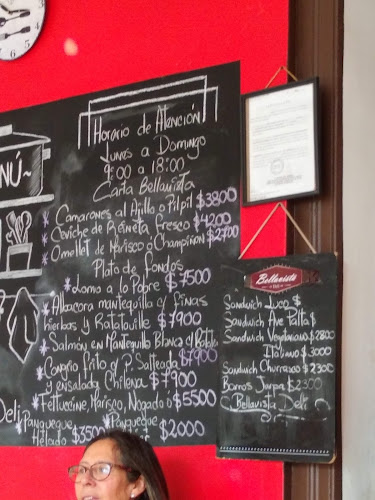 NÚ~
Horario de Atención
Lunes a Domingo
9:00 a 18:00
Carta Bellavista
* Camarones al Ajillo o Pilpil $3800
* Ceviche de Reineta fresco $4200
* Omellet de Marisco ó Champiñon $2700
Plato de fondos
* Lomo a lo Pobre $7500
* Albacora mantequilla y finas
hierbas y Ratatouille $7900
* Salmón en Mantequilla Blanca
$7900
* Congrio frito y P. Salteada
y ensalada Chilena $7900
* Fettuccine, Marisco, Nogado ó $5500
* Panqueque
Helado $3500
* Panqueque
$2000
Deli
Bellavista
Sandwich Luco $
Sandwich Ave Palta $
Sandwich Vegetariano $2800
Italiano $3000
Sandwich Churrasco $2300
Barros Jarpa $2300
Bellavista Deli